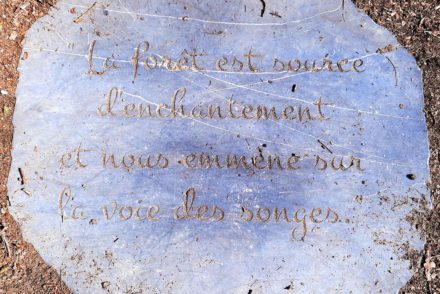 La forêt est source
d'enchantement
et nous emmène sur
la voie des songes.